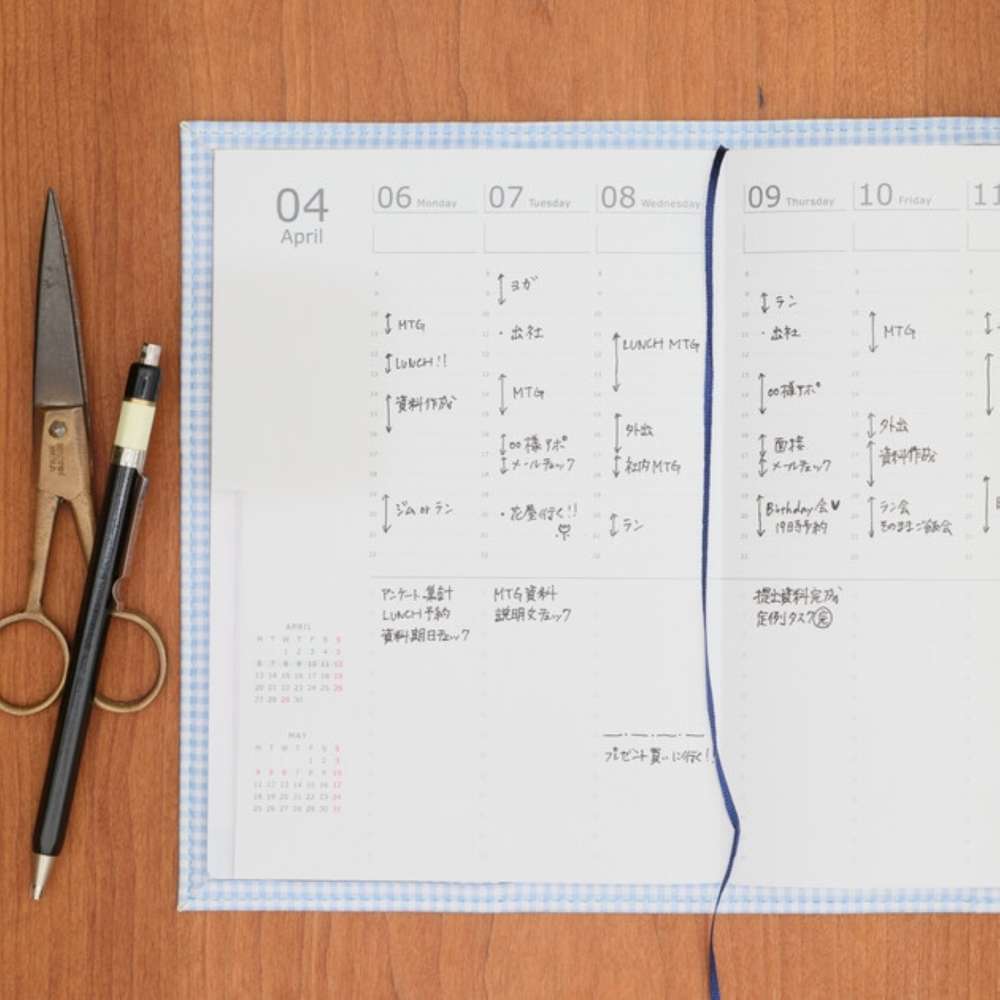 04
April
06 Monday
MTG
LUNCH!!
資料作成
ジム or ラン
アンケート集計
LUNCH予約
資料期日チェック
07 Tuesday
ヨガ
・出社
MTG
○○様アポ
メールチェック
・花屋行く!!
MTG資料
説明文チェック
08 Wednesday
LUNCH MTG
外出
社内MTG
ラン
プレゼント買いに行く!
09 Thursday
ラン
・出社
○○様アポ
面接
メールチェック
Birthday会♥
19時予約
提出資料完成
定例タスク㊡
10 Friday
MTG
外出
資料作成
ラン会
そのままご飯会
11
APRIL
M T W T F S S
1 2 3 4 5
6 7 8 9 10 11 12
13 14 15 16 17 18 19
20 21 22 23 24 25 26
27 28 29 30
MAY
M T W T F S S
1 2 3
4 5 6 7 8 9 10
11 12 13 14 15 16 17
18 19 20 21 22 23 24
25 26 27 28 29 30 31